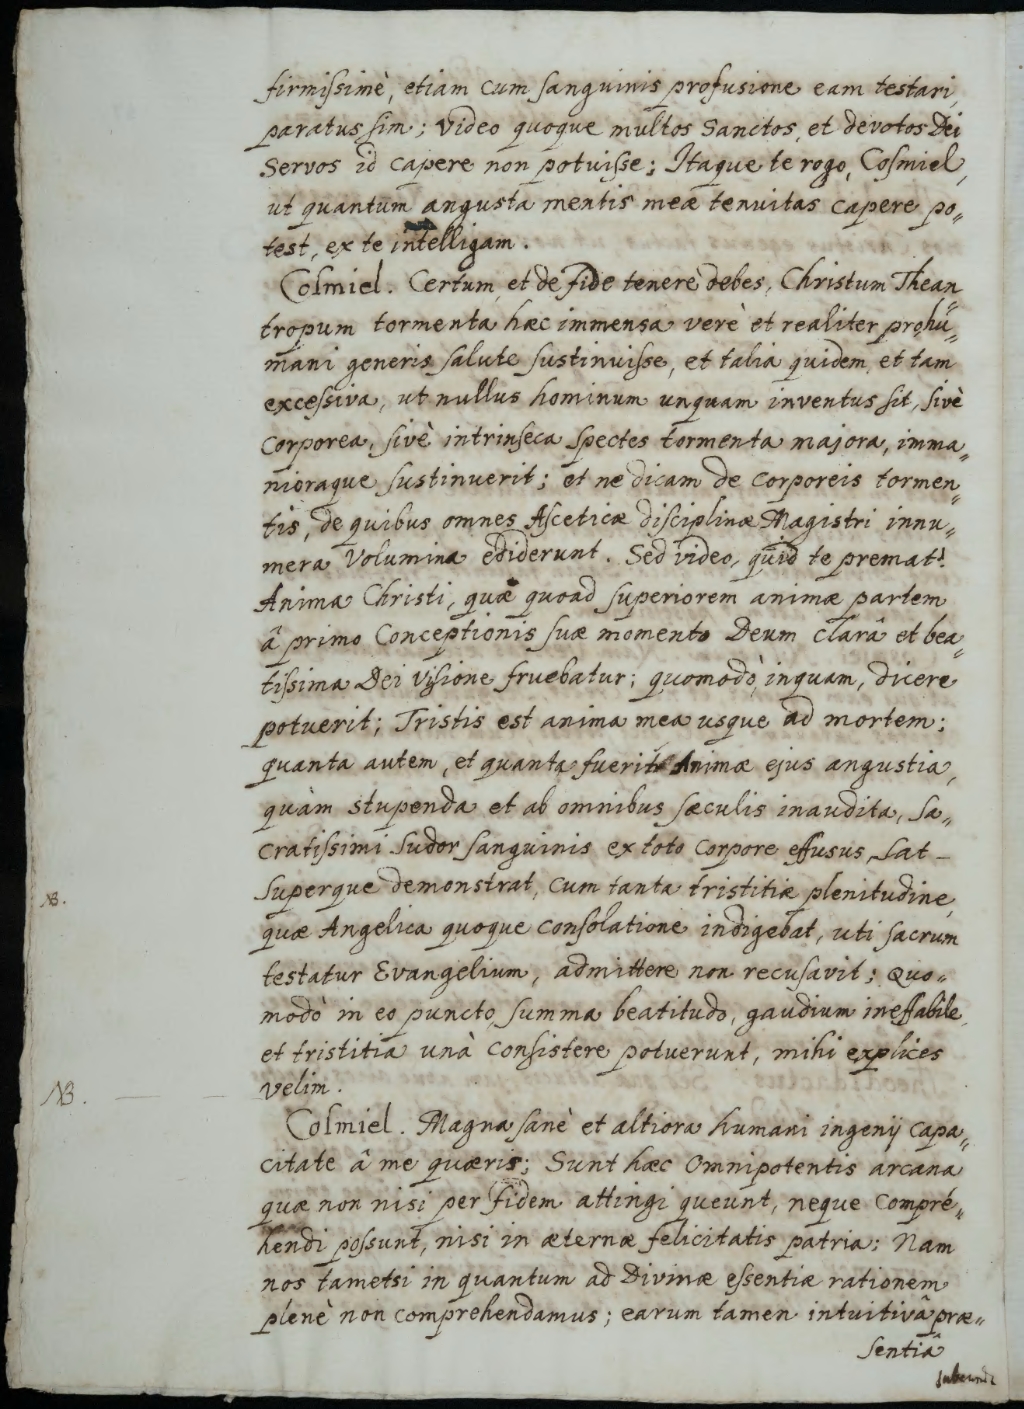 firmissimè, etiam cum sanguinis profusione eam testari,
paratus sim; video quoque multos Sanctos, et devotos Dei
Servos id capere non potuisse; Itaque te rogo, Cosmiel,
ut quantum angusta mentis meæ tenuitas capere po„
test, ex te intelligam.
Cosmiel. Certum, et de fide tenerè debes, Christum Thean„
tropum tormenta hæc immensa verè et realiter pro hu„
mani generis salute sustinuisse, et talia quidem, et tam
excessiva, ut nullus hominum unquam inventus sit, sivè
corporea, sivè intrinseca spectes tormenta majora, imma„
nioraque sustinuerit; et ne dicam de corporeis tormen„
tis, de quibus omnes Asceticæ disciplinæ Magistri innu„
mera Volumina ediderunt. Sed video, quid te premat!
Anima Christi, quæ quoad superiorem animæ partem
â primo Conceptionis suæ momento Deum clarâ et bea„
tissima Dei visione fruebatur; quomodò, inquam, dicere
potuerit; Tristis est anima mea usque ad mortem;
quanta autem, et quanta fuerit Animæ ejus angustia,
quàm stupenda et ab omnibus sæculis inaudita, Sa„
cratissimi Sudor sanguinis ex toto corpore effusus, sat
superque demonstrat, cum tanta tristitiæ plenitudine,
NB.
quæ Angelica quoque consolatione indigebat, uti sacrum
testatur Evangelium, admittere non recusavit; Quo„
modò in eo puncto, summa beatitudo, gaudium ineffabile,
et tristitia unà consistere potuerunt, mihi explices
velim.
NB.
Cosmiel. Magna sanè et altiora humani ingenij capa„
citate â me quæris; Sunt hæc Omnipotentis arcana
quæ non nisi per fidem attingi queunt, neque Compré„
hendi possunt, nisi in æternæ felicitatis patria: Nam
nos tametsi in quantum ad Divinæ essentiæ rationem
plenè non comprehendamus; earum tamen intuitivâ præ„
sentiâ